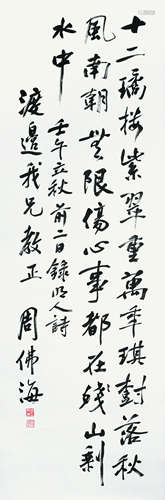 十二瓊樓紫翠重萬年琪樹落秋
風南朝無限傷心事都在殘山剩
水中
壬午立秋前二日錄明人詩
渡邊我兄教正
周佛海